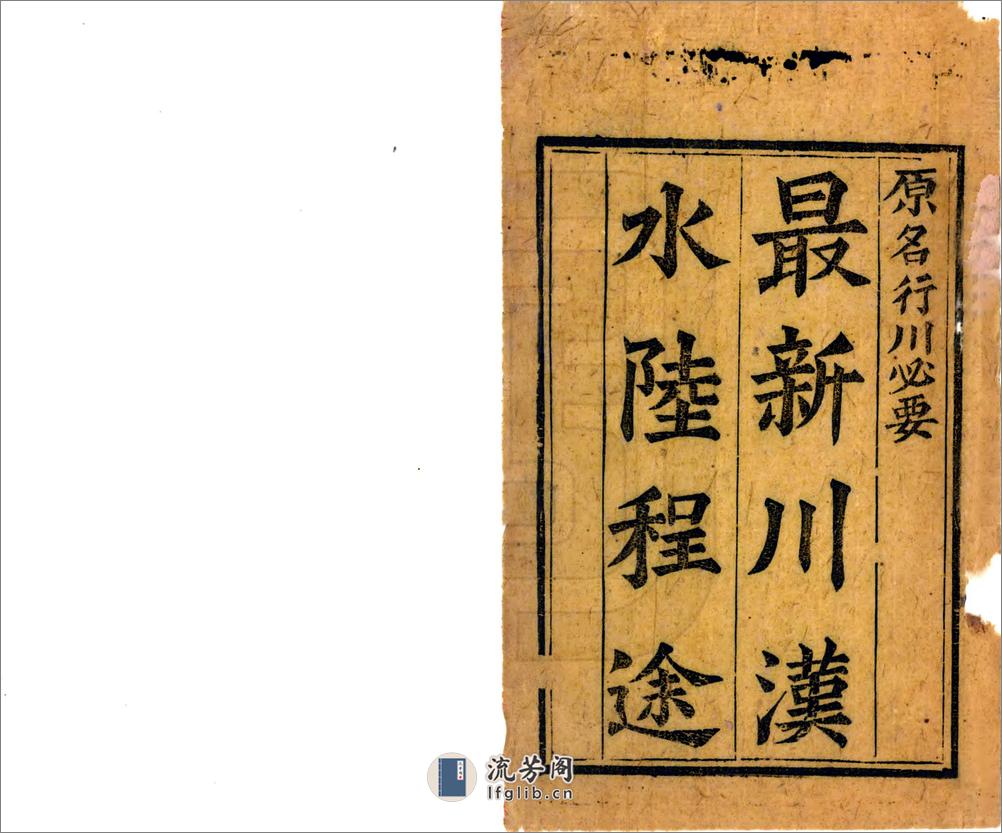 原名行川必要
最新川漢
水陸程途
流芳阁
lfglib.cn